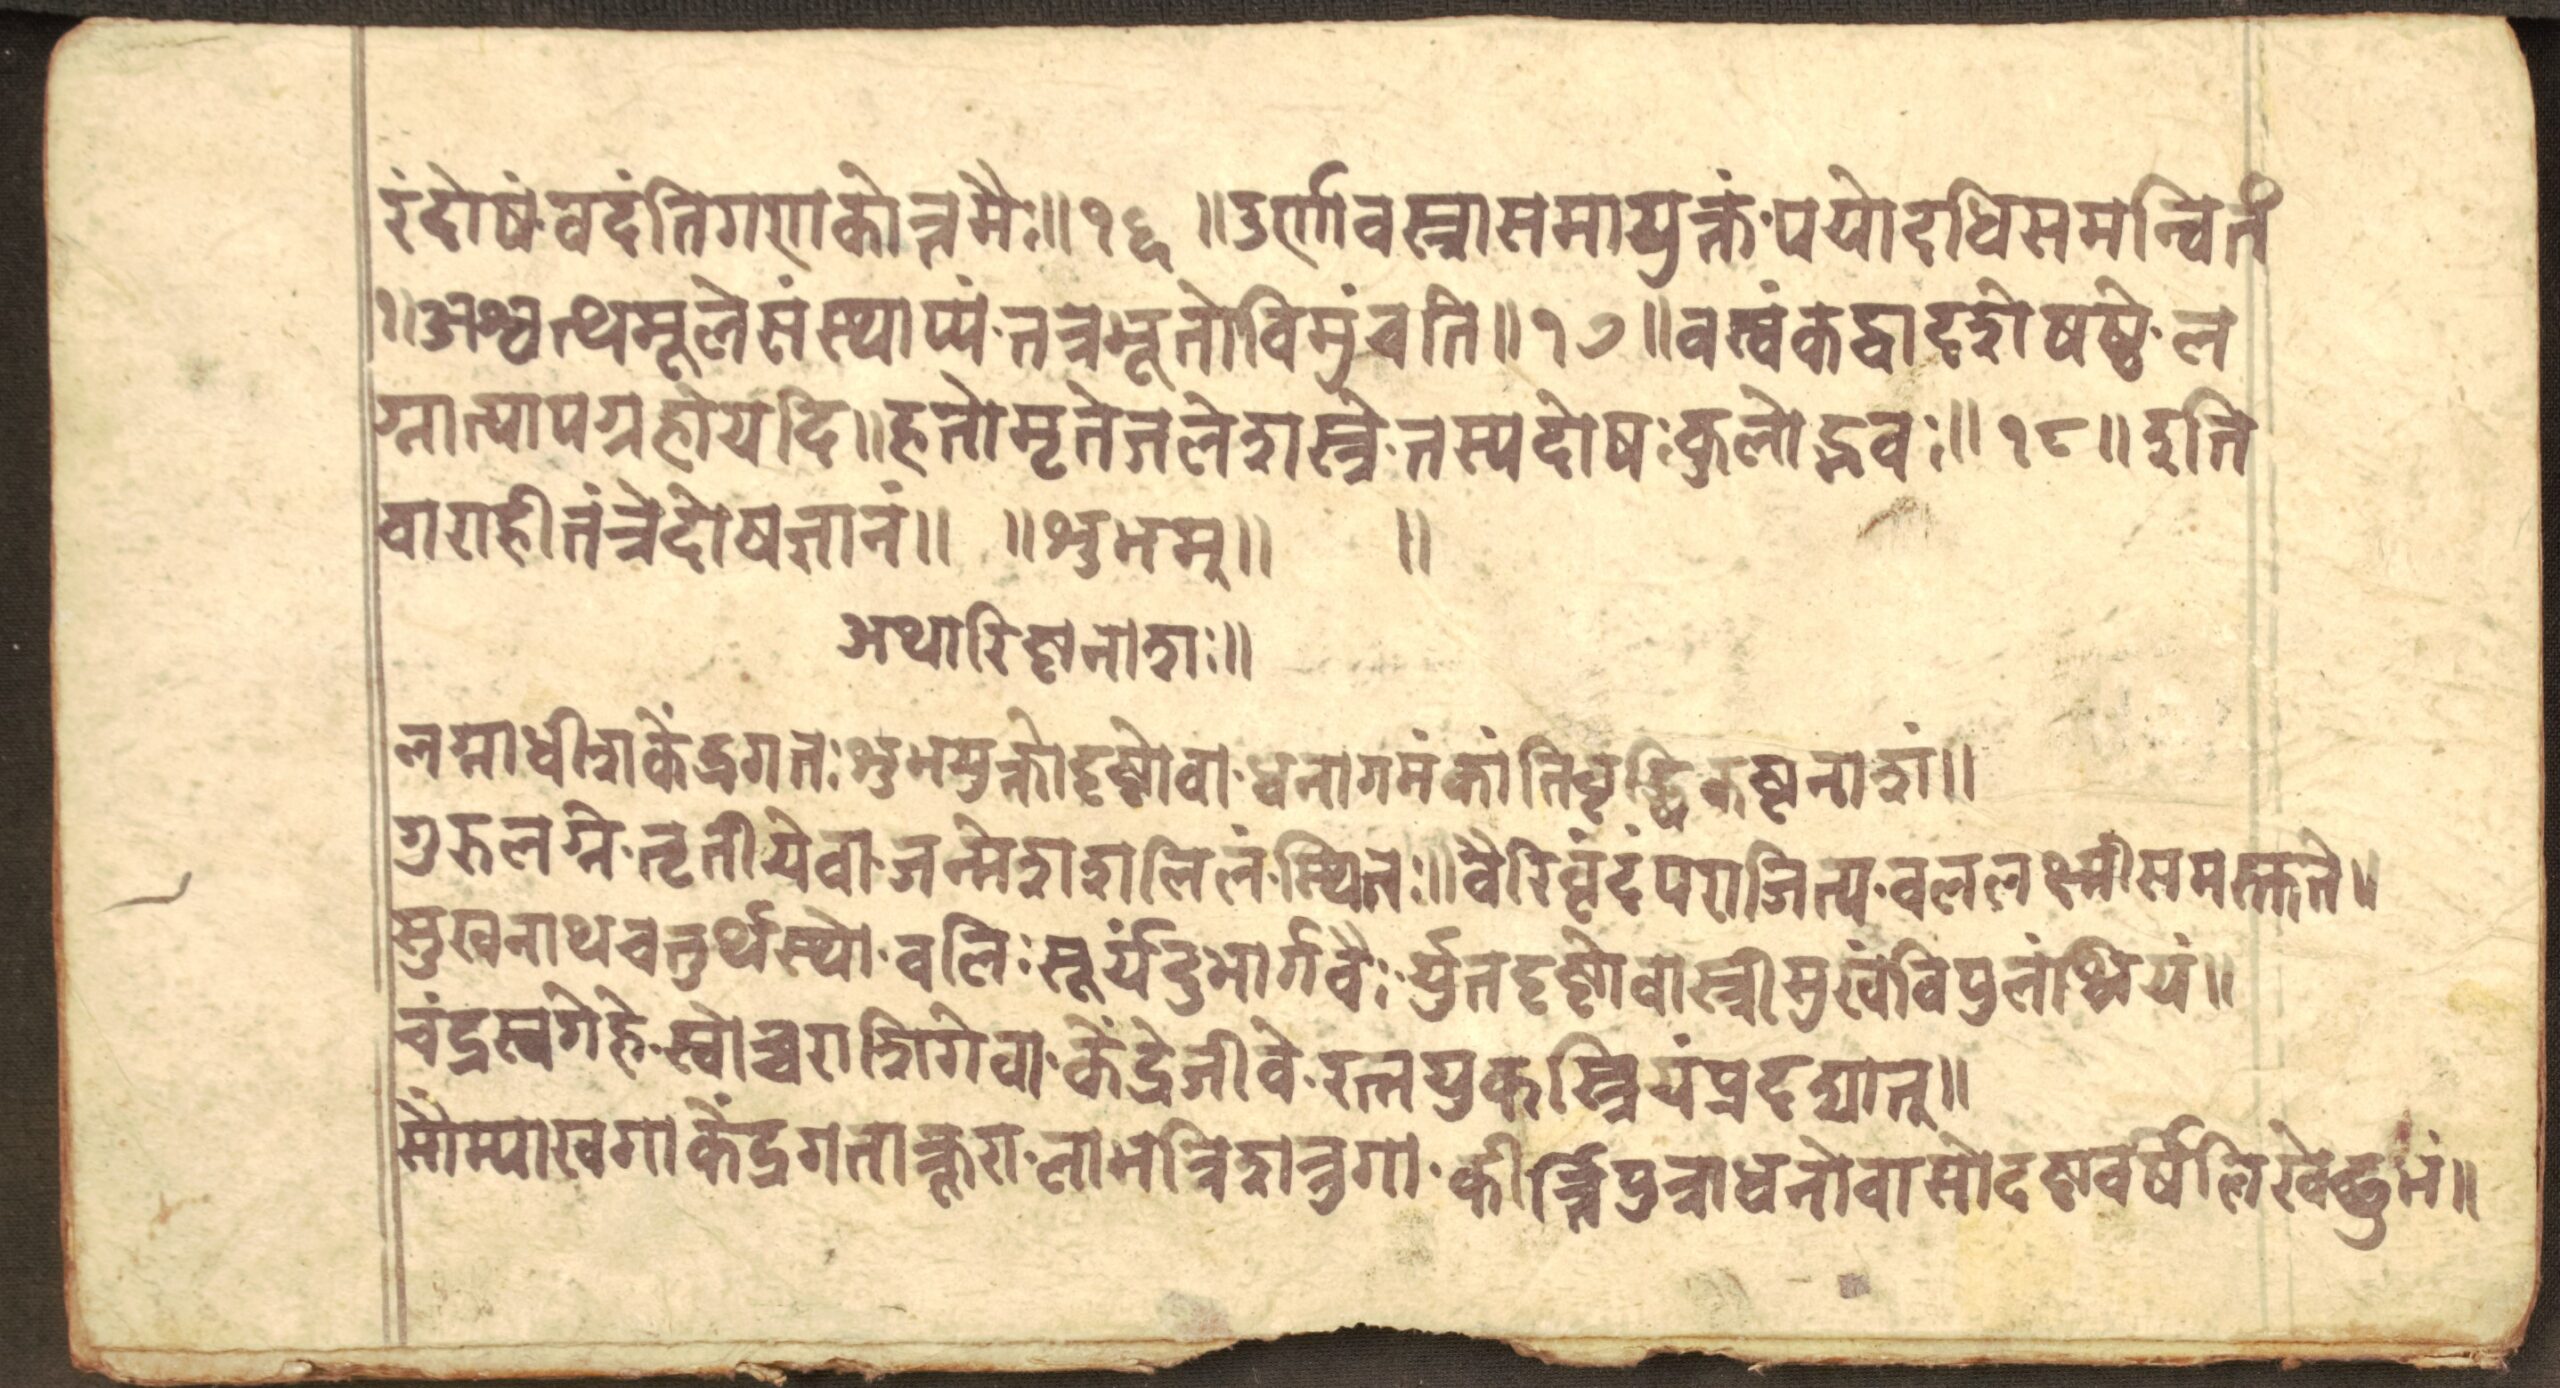 रंदोषंवदंतिगणकोत्तमैः॥१६ ॥उर्णावस्त्रासमायुक्तं॰पयोदधिसमन्वितं
॥अश्वत्थमूलेसंस्थाप्यं॰तत्रभूतोविमुंचति॥१७॥वत्वंकद्वादशेषष्ठे॰ल
ग्नात्पापग्रहोयदि॥हतोमृतेजलेशस्त्रे॰तस्यदोषःकुलोद्भवः॥१८॥इति
वाराहीतंत्रेदोषज्ञानं॥ ॥शुभम्॥ ॥
अथारिष्टनाशः॥
लग्नाधीशकेंद्रगतःशुभयुक्तोदृष्टोवा॰धनागमंकांतिवृद्धिकष्टनाशं॥
गुरुलग्ने॰तृतीयेवा॰जन्मेशशलिलं॰स्थितः॥वैरिवृंदंपराजित्य॰वललक्ष्मीसमश्नुते॥
सुखनाथचतुर्थस्थो॰वलिःसूर्यंदुभार्गवैः॰र्युतदृष्टोवास्त्रीसुखंविपुलंश्रियं॥
चंद्रस्वगेहे॰स्वोच्चराशिगेवा॰केंद्रेजीवे॰रत्नयुकस्त्रियंप्रदद्यात्॥
सौम्याखगाकेंद्रगताक्रूरा॰लाभत्रिशत्रुगा॰कीर्त्तिपुत्राधनोवासोदष्टावर्षेलिखेछुभं॥